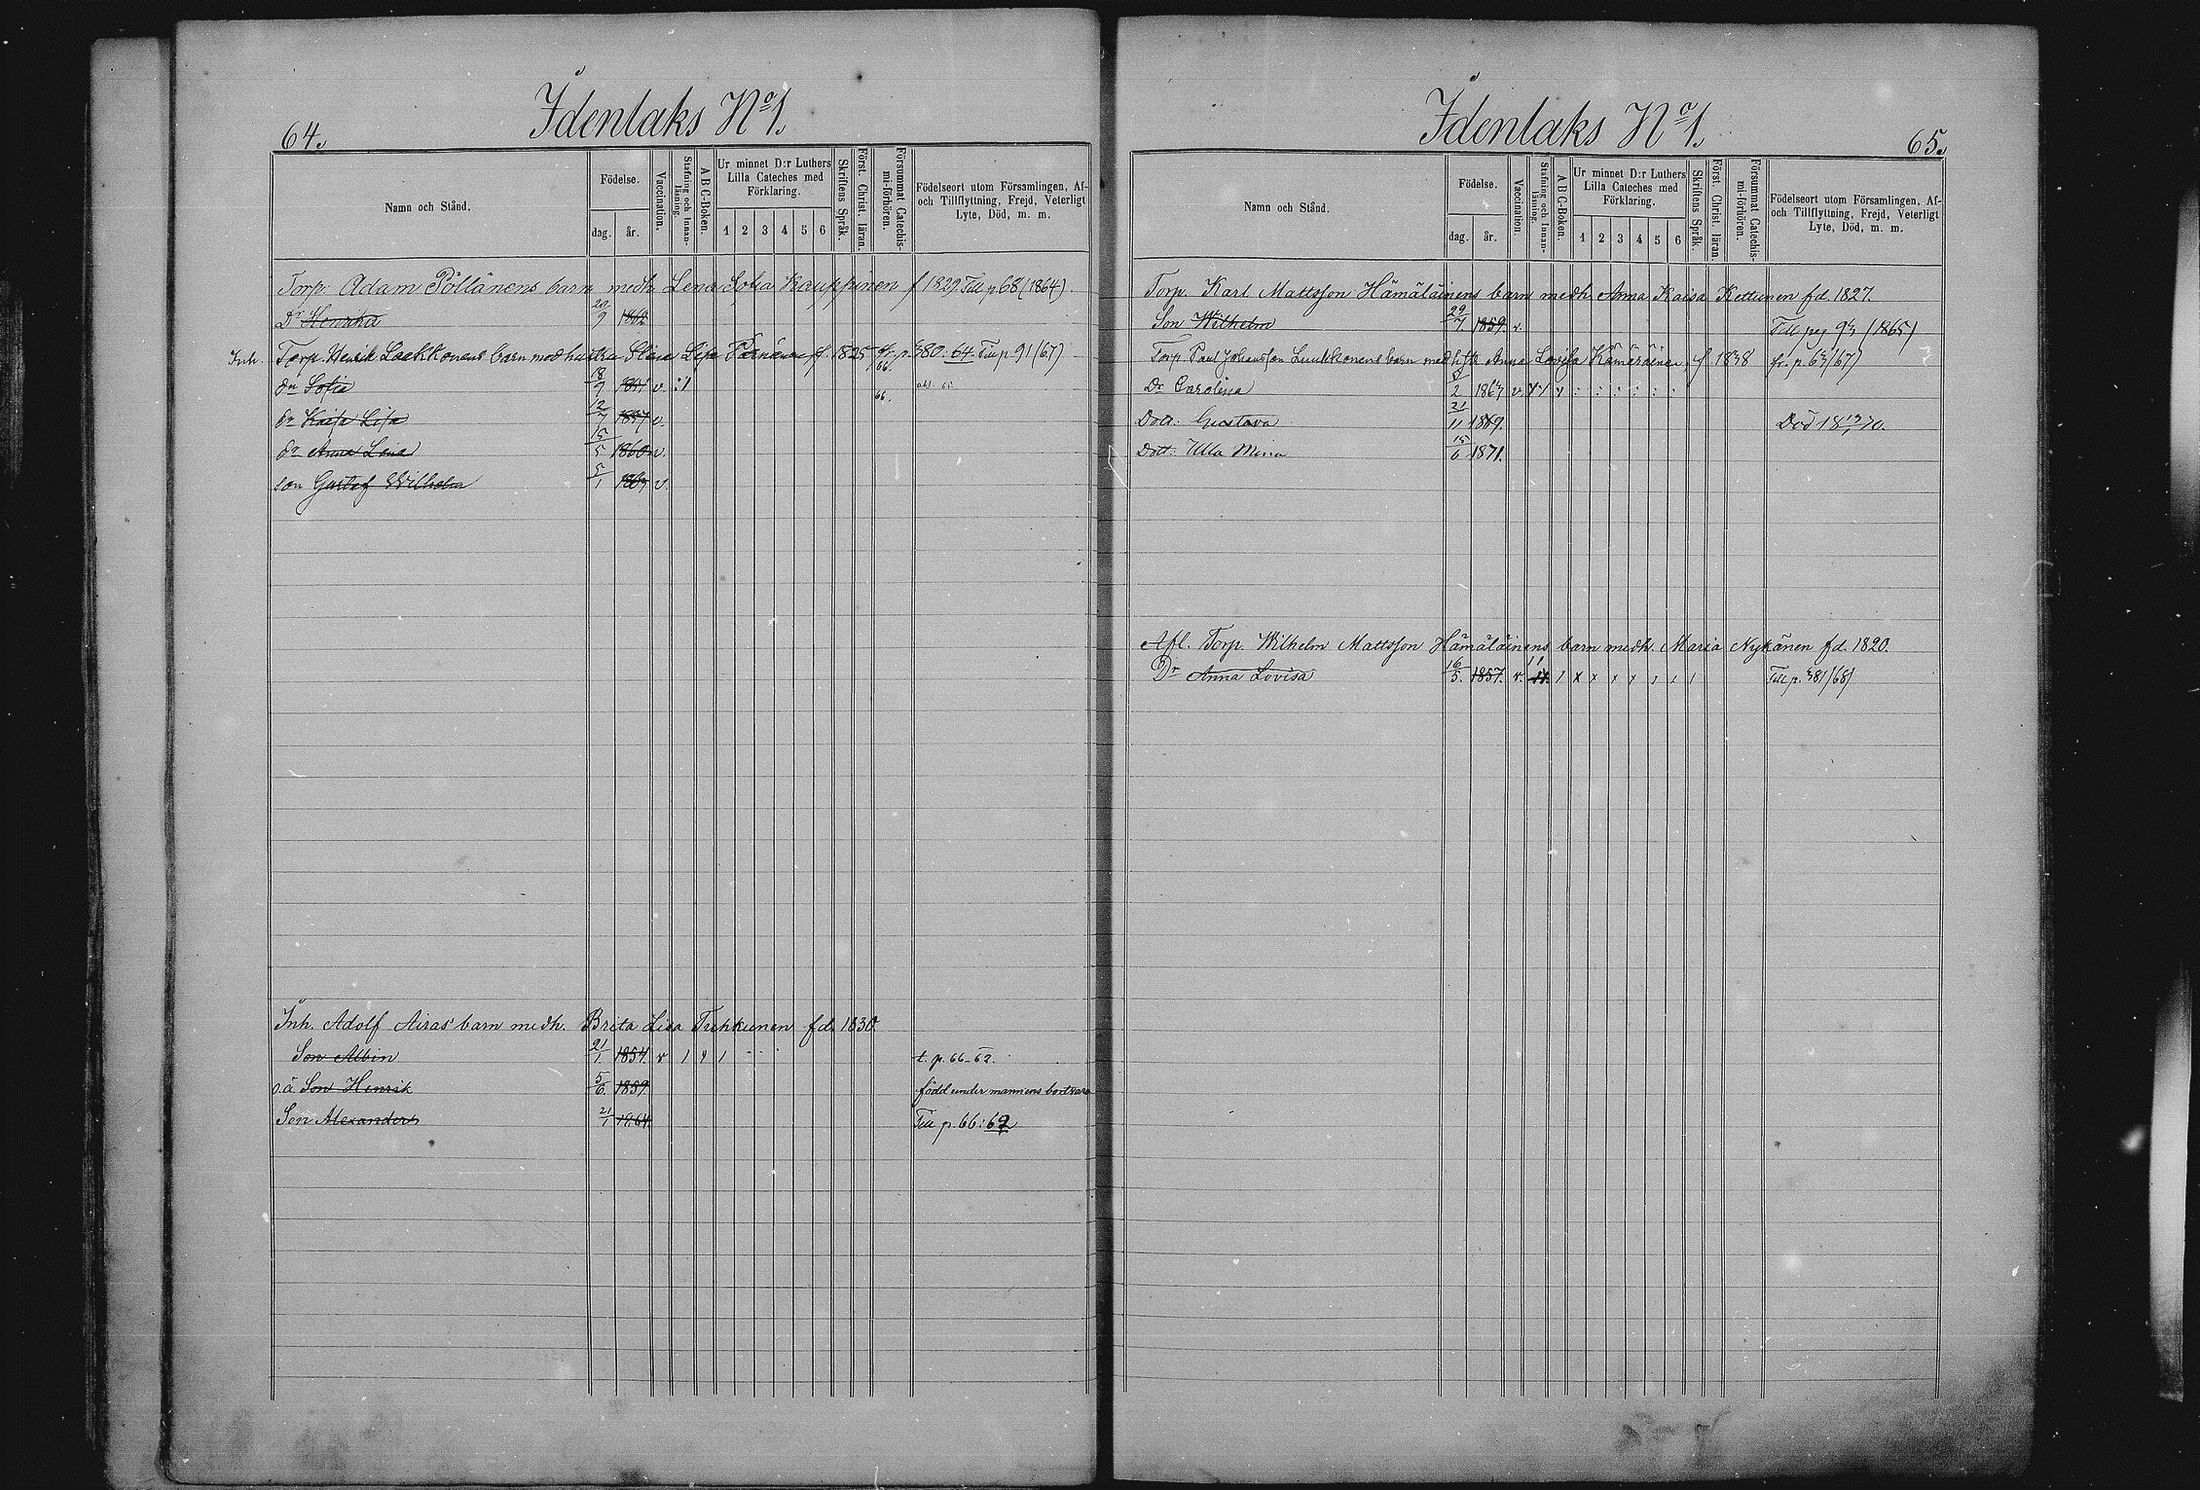 64.
Idenlaks No 1.
Namn och Stånd.
Födelse.
dag.
år.
Vaccination.
Stafning och Innan-läsning.
A B C-Boken.
Ur minnet D:r Luthers
Lilla Cateches med
Förklaring.
1 2 3 4 5 6
Skriftens Språk.
Först. Christ. läran.
Försummat Catechis-mi-förhören.
Födelseort utom Församlingen, Af-
och Tillflyttning, Frejd, Veterligt
Lyte, Död, m. m.
Torp. Adam Pöllänens barn medh Lena Sofia Kauppinen f 1829. Till p. 68 (1864).
Dr Henrika 20/9 1862
Inh. Torp. Henrik Laakkonens barn med hustru Lisa Pärnänen f. 1825 fr. p. 380: 64. Till p. 91 (67)
66.
dr Sofia 18/9 v. : 1
66.
dr Kaisa Lisa 12/7 1857 v.
dr Anna Lena 15/5 1860 v.
son Gustaf Wilhelm 5/1 v.
Inh. Adolf Airas barn medh. Brita Lisa Tuhkunen fd. 1830.
Son Albin 21/1. 1854 v 1 1 1 t. p. 66-62.
o.ä. Son Henrik 5/6. 1859. född under mannens bortvaro
Son Alexander 21/1 1864. Till p. 66: 62
Idenlaks No 1.
65.
Namn och Stånd.
Födelse.
dag.
år.
Vaccination.
Stafning och Innan-läsning.
A B C-Boken.
Ur minnet D:r Luthers
Lilla Cateches med
Förklaring.
1 2 3 4 5 6
Skriftens Språk.
Först. Christ. läran.
Försummat Catechis-mi-förhören.
Födelseort utom Församlingen, Af-
och Tillflyttning, Frejd, Veterligt
Lyte, Död, m. m.
Torp. Karl Mattsson Hämäläinens barn medh Anna Kaisa Kettunen fd. 1827.
Son Wilhelm 29/7. 1859. v. Till pag (1865)
Torp. Paul Johansson Luukkonens barn med h. Anna Lovisa Kämäräinen f. 1838 fr. p. 63/67)
Dr Carolina 2 v.
Dott: Gustava 21/11 1869. Död 18 70.
Dott: Ulla Mina 15/6 1871.
Afl. Torp. Wilhelm Mattsson Hämäläinens barn medh. Maria Nykänen fd. 1820.
Dr Anna Lovisa 16/5. 1857. v. 11 1 x x x x 1 1 1 Till p. 381/68)